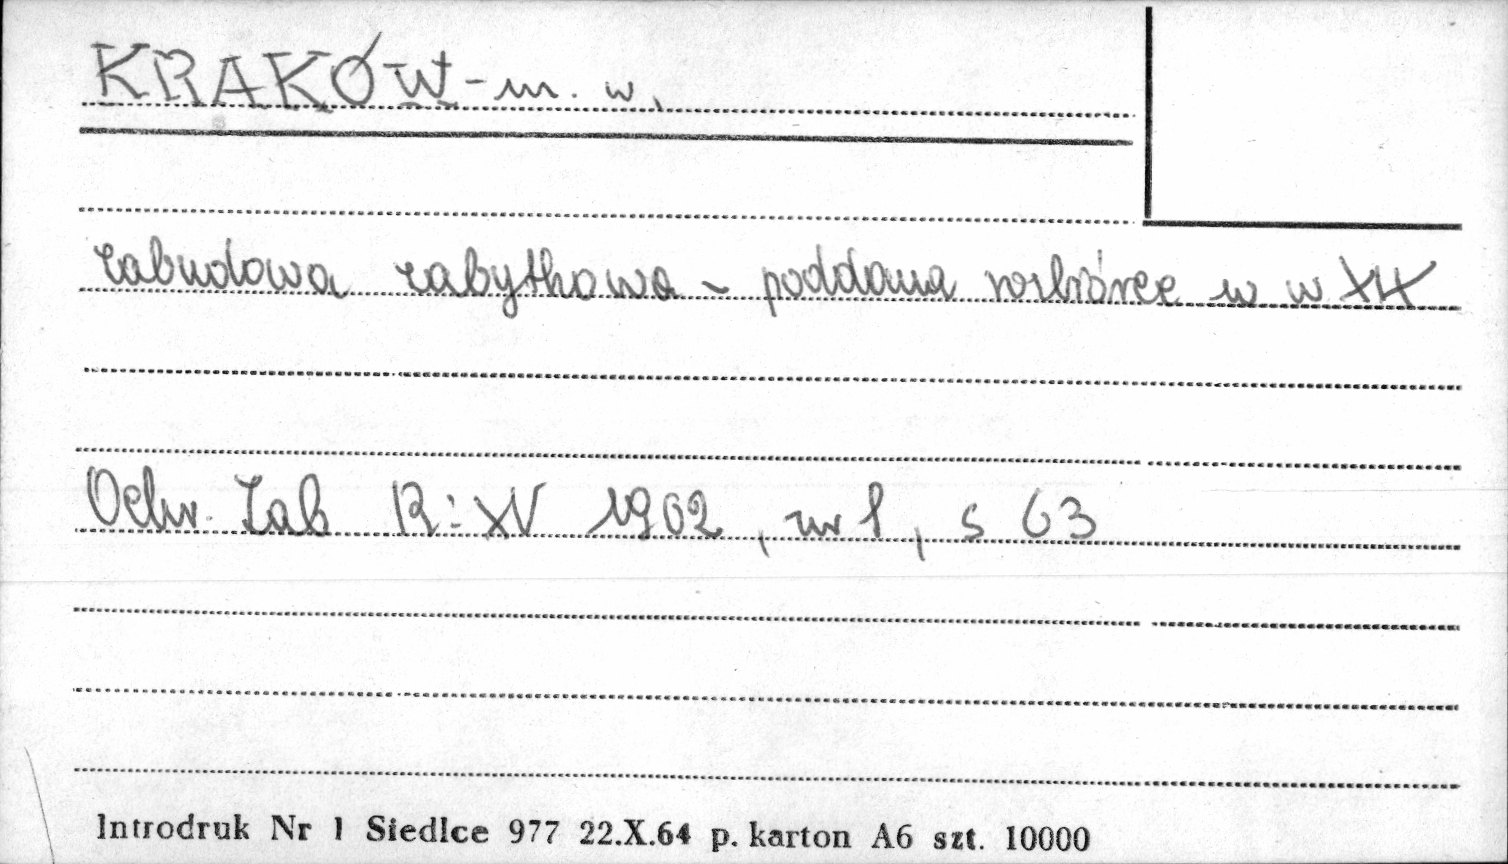 KRAKÓW - m. w.
zabudowa zabytkowa - poddana rozbiórce w w XIX
Ochr. Zab R: XV 1962, nr 1, s 63
Introdruk Nr 1 Siedlce 977 22.X.64 p. karton A6 szt. 10000